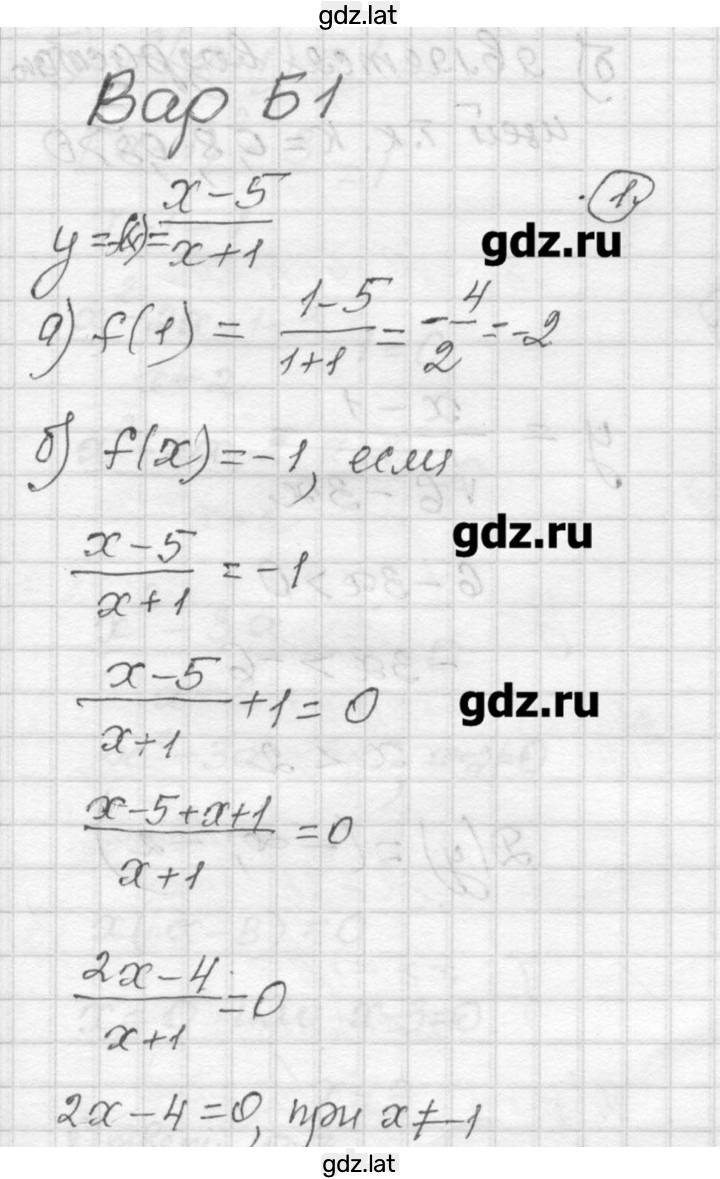 gdz.lat
Вар Б1
1.
y = f(x) = (x-5)/(x+1)
gdz.ru
а) f(1) = (1-5)/(1+1) = -4/2 = -2
б) f(x) = -1, если
gdz.ru
(x-5)/(x+1) = -1
(x-5)/(x+1) + 1 = 0
gdz.ru
(x-5+x+1)/(x+1) = 0
(2x-4)/(x+1) = 0
2x-4=0, при x≠-1
gdz.lat